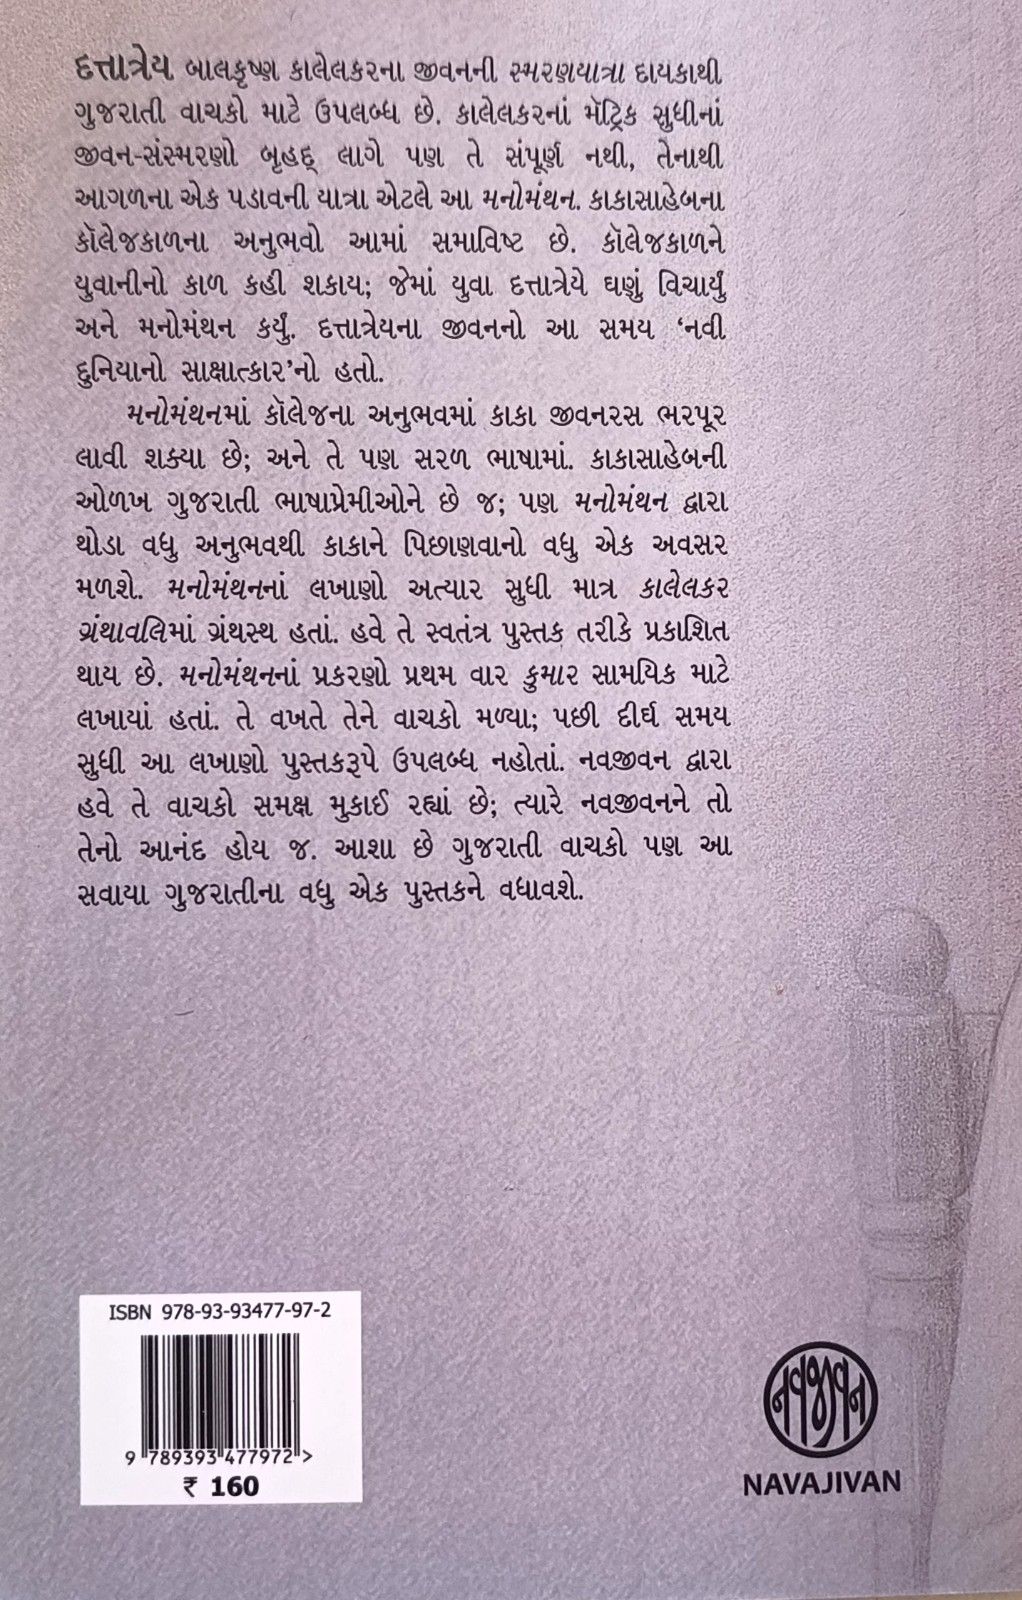 દત્તાત્રેય બાલકૃષ્ણ કાલેલકરના જીવનની સ્મરણયાત્રા દાયકાથી
ગુજરાતી વાચકો માટે ઉપલબ્ધ છે. કાલેલકરનાં મૅટ્રિક સુધીનાં
જીવન-સંસ્મરણો બૃહદ્ લાગે પણ તે સંપૂર્ણ નથી, તેનાથી
આગળના એક પડાવની યાત્રા એટલે આ મનોમંથન. કાકાસાહેબના
કૉલેજકાળના અનુભવો આમાં સમાવિષ્ટ છે. કૉલેજકાળને
યુવાનીનો કાળ કહી શકાય; જેમાં યુવા દત્તાત્રેયે ઘણું વિચાર્યું
અને મનોમંથન કર્યું. દત્તાત્રેયના જીવનનો આ સમય ‘નવી
દુનિયાનો સાક્ષાત્કાર’નો હતો.
મનોમંથનમાં કૉલેજના અનુભવમાં કાકા જીવનરસ ભરપૂર
લાવી શક્યા છે; અને તે પણ સરળ ભાષામાં. કાકાસાહેબની
ઓળખ ગુજરાતી ભાષાપ્રેમીઓને છે જ; પણ મનોમંથન દ્વારા
થોડા વધુ અનુભવથી કાકાને પિછાણવાનો વધુ એક અવસર
મળશે. મનોમંથનનાં લખાણો અત્યાર સુધી માત્ર કાલેલકર
ગ્રંથાવલિમાં ગ્રંથસ્થ હતાં. હવે તે સ્વતંત્ર પુસ્તક તરીકે પ્રકાશિત
થાય છે. મનોમંથનનાં પ્રકરણો પ્રથમ વાર કુમાર સામયિક માટે
લખાયાં હતાં. તે વખતે તેને વાચકો મળ્યા; પછી દીર્ઘ સમય
સુધી આ લખાણો પુસ્તકરૂપે ઉપલબ્ધ નહોતાં. નવજીવન દ્વારા
હવે તે વાચકો સમક્ષ મુકાઈ રહ્યાં છે; ત્યારે નવજીવનને તો
તેનો આનંદ હોય જ. આશા છે ગુજરાતી વાચકો પણ આ
સવાયા ગુજરાતીના વધુ એક પુસ્તકને વધાવશે.
ISBN 978-93-93477-97-2
9 789393 477972 >
₹ 160
નવજીવન
NAVAJIVAN